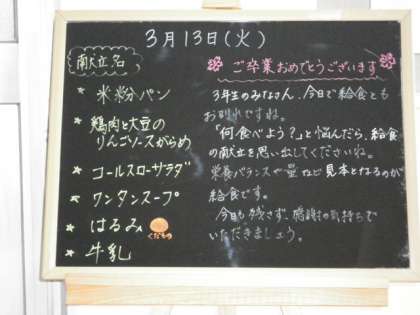 3月13日(火)
献立名
* 米粉パン
* 鶏肉と大豆の
りんごソースがらめ
* コールスローサラダ
* ワンタンスープ
* はるみ
くだもの
* 牛乳
ご卒業おめでとうございます
3年生のみなさん、今日で給食とも
お別れですね。
「何食べよう?」と悩んだら、給食
の献立を思い出してくださいね。
栄養バランスや量など見本となるのが
給食です。
今日も残さず、感謝の気持ちで
いただきましょう。